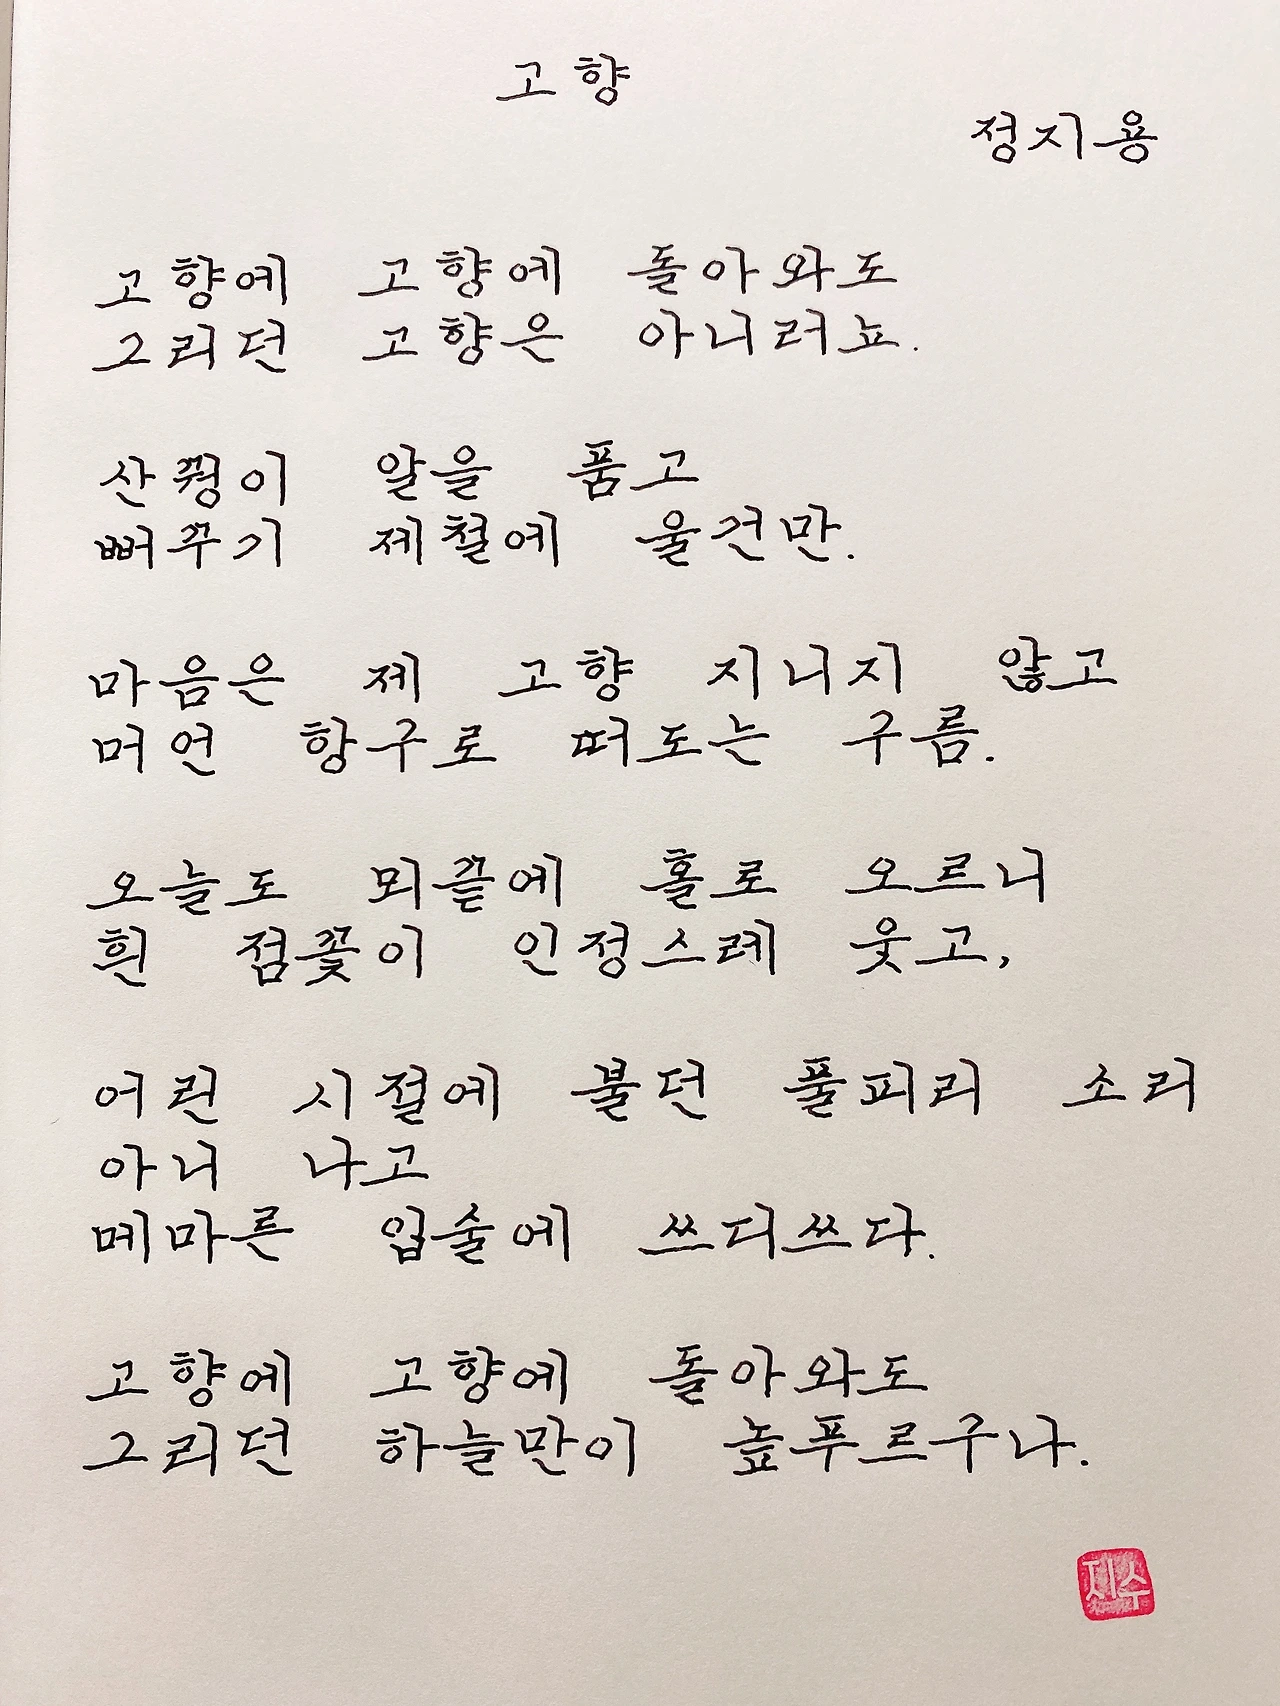 고향
정지용
고향에 고향에 돌아와도
그리던 고향은 아니러뇨.
산꿩이 알을 품고
뻐꾸기 제철에 울건만.
마음은 제 고향 지니지 않고
머언 항구로 떠도는 구름.
오늘도 뫼끝에 홀로 오르니
흰 점꽃이 인정스레 웃고,
어린 시절에 불던 풀피리 소리
아니 나고
메마른 입술에 쓰디쓰다.
고향에 고향에 돌아와도
그리던 하늘만이 높푸르구나.
지수